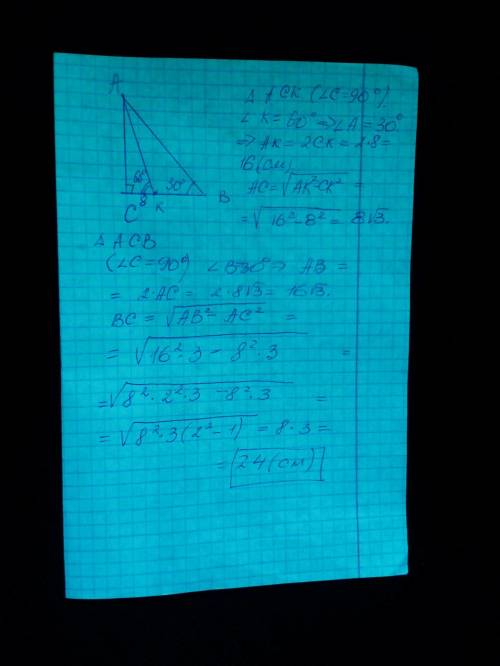 A
60°
30°
B
C
8
K
△ ACK (∠C=90°).
∠ K = 60° ⇒ ∠A = 30°.
⇒ AK = 2CK = 2·8 =
16(см)
AC = √AK²-CK² =
= √16²-8² = 8√3.
△ ACB
(∠C=90°) ∠B=30° ⇒ AB =
= 2·AC = 2·8√3 = 16√3.
BC = √AB² - AC² =
= √16²·3 - 8²·3 =
= √8²·2²·3 - 8²·3 =
= √8²·3(2²-1) = 8·3 =
= 24(см)